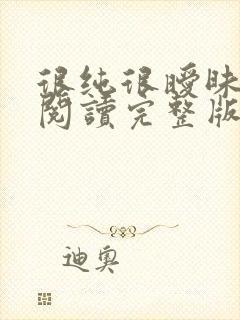 很纯很曖昧
閱讀完整版
迪奥